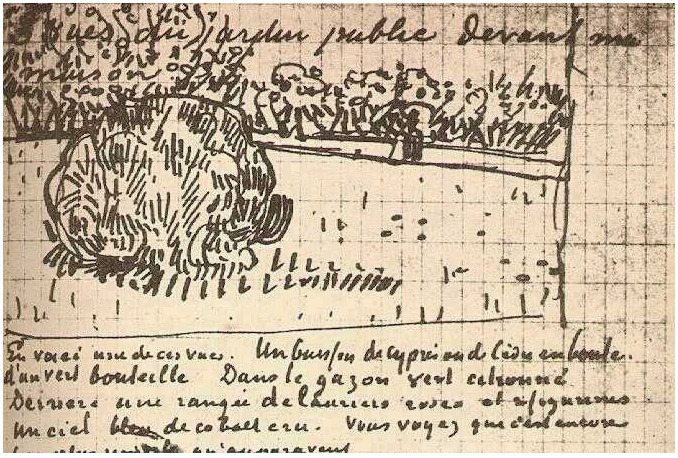 vues du jardin public devant ma
maison
En voici une de ces vues. Un buisson de cyprès ou de cèdre en boule.
d'un vert bouteille Dans le gazon vert citronné
Derrière une rangée de lauriers roses et figurines
Un ciel bleu de cobalt cru. Vous voyez que c'est encore
plus simple qu'auparavant